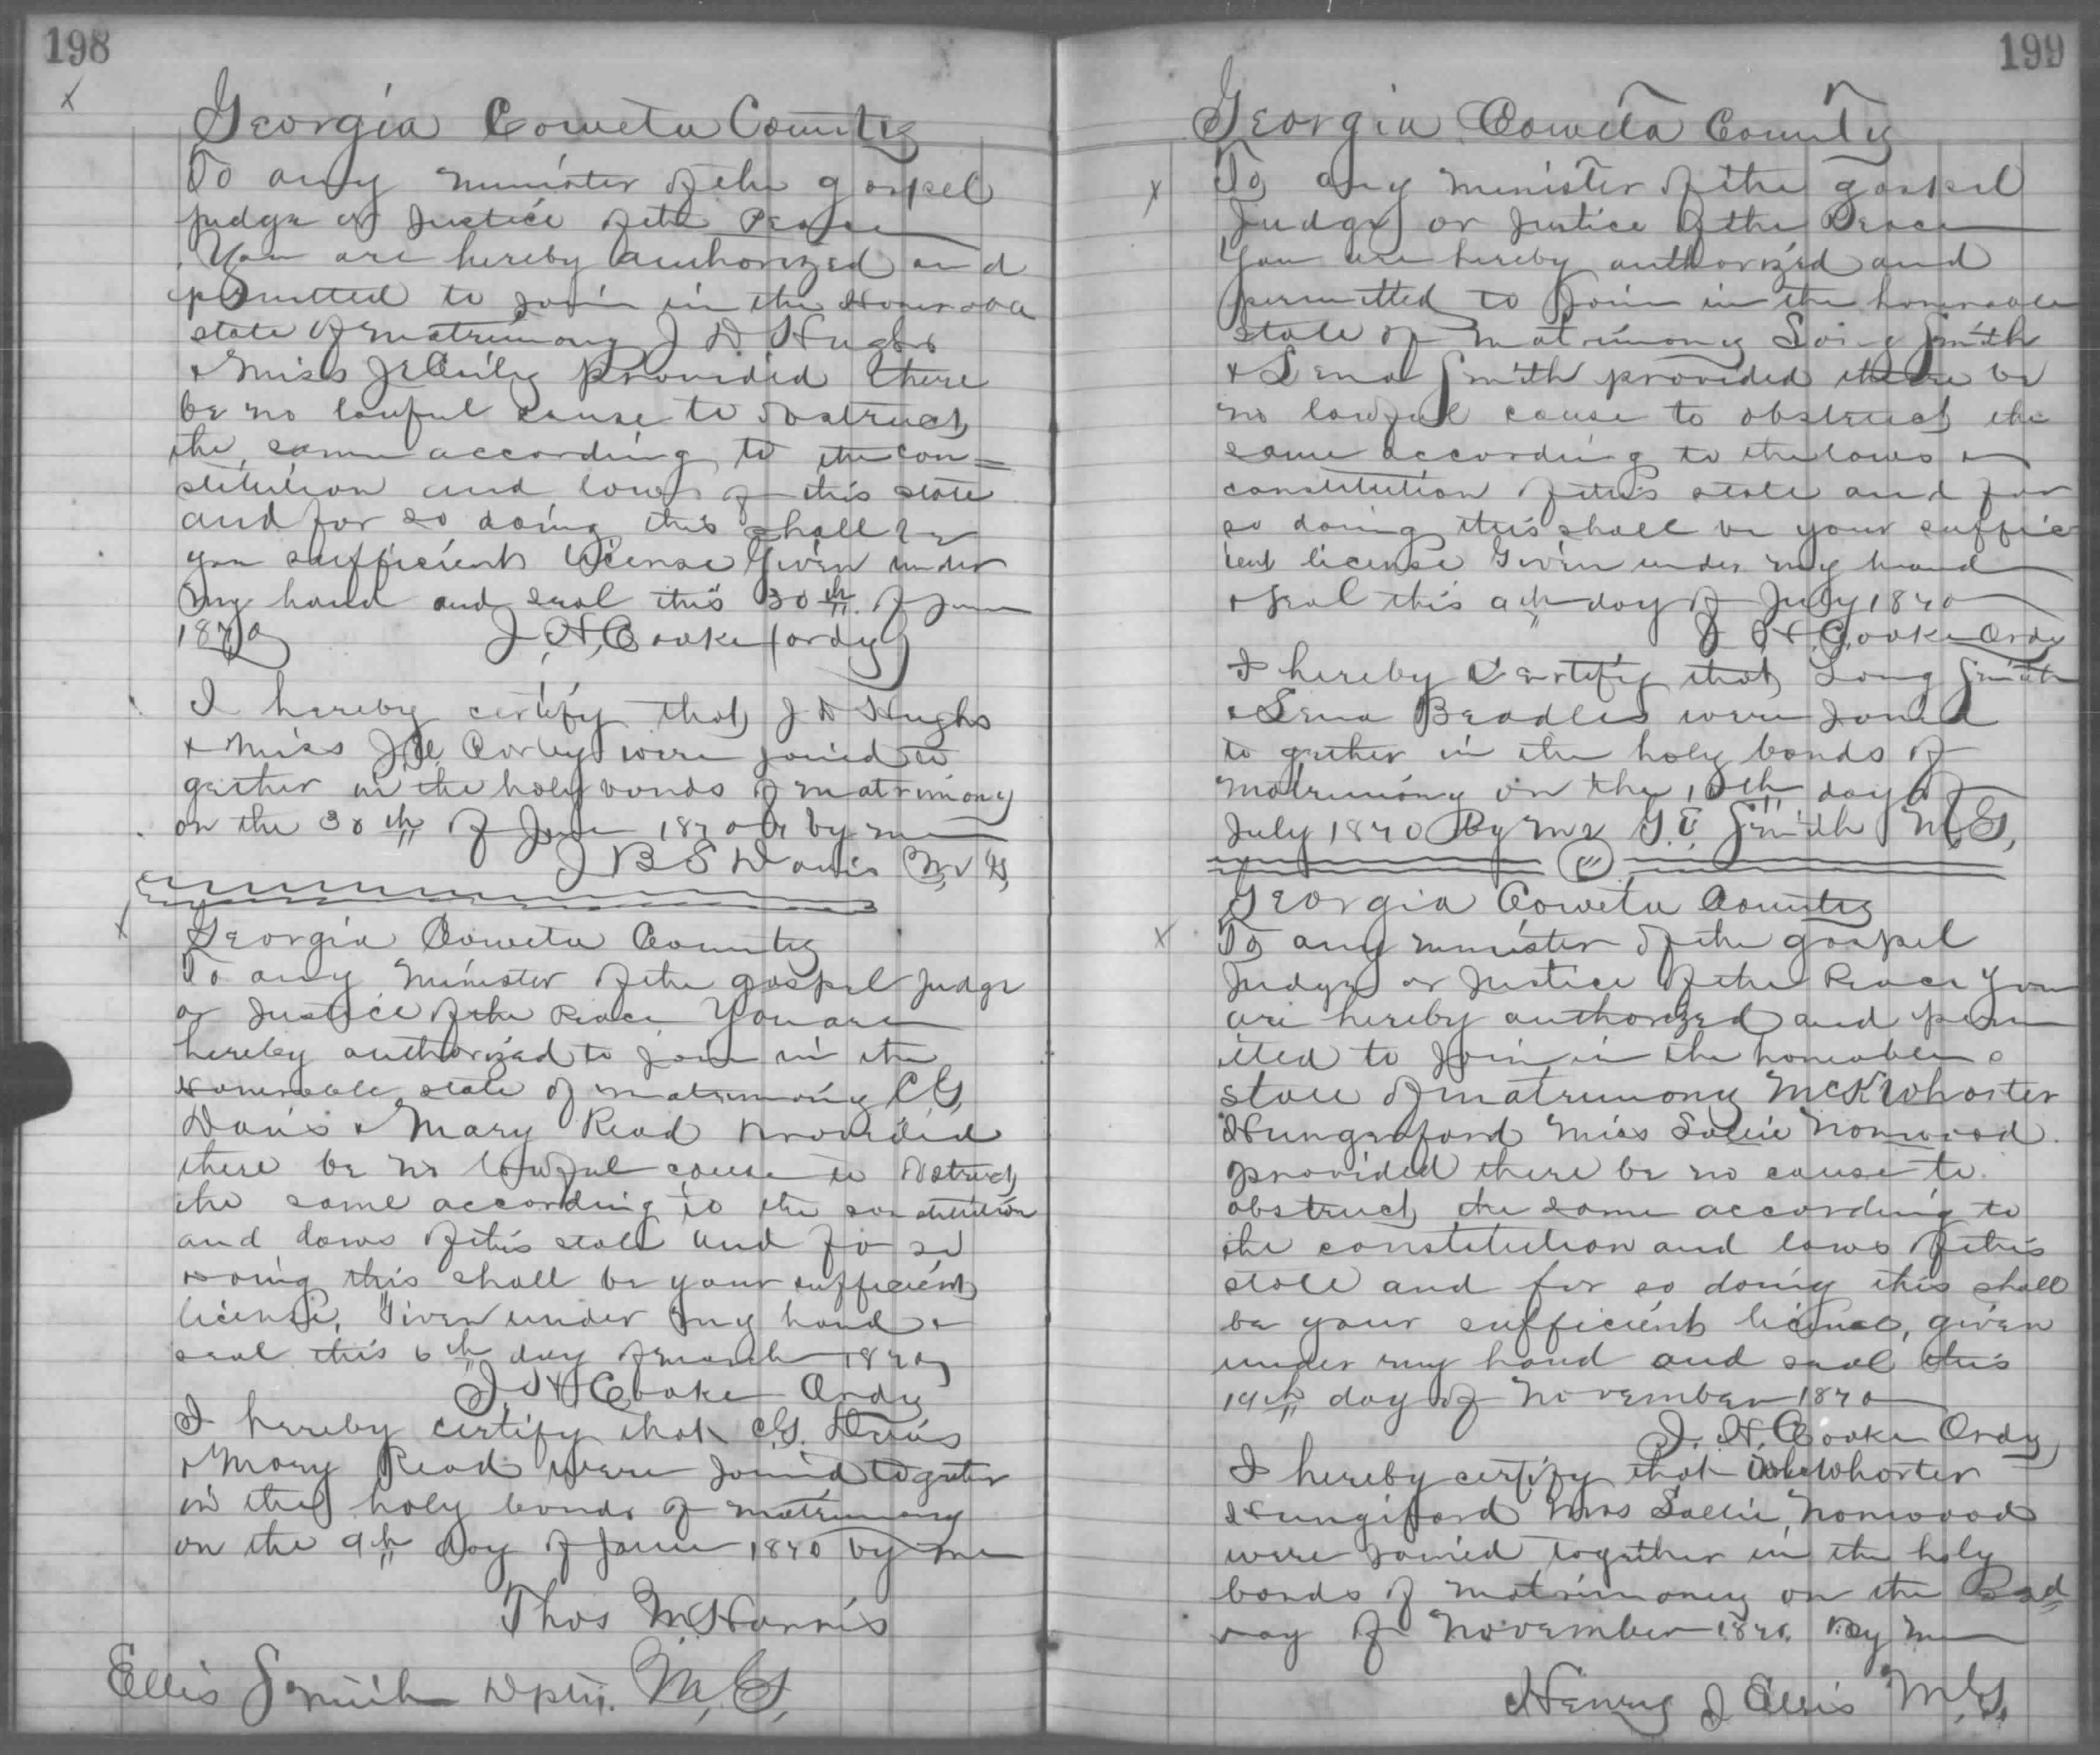 198
Georgia Coweta County
To any minister of the gospel
judge or Justice of the Peace
You are hereby authorized and
permitted to join in the Honorable
state of matrimony J D Hughs
& Miss J E provided there
be no lawful cause to obstruct
the same according to the con=
stitution and laws of this state
and for so doing this shall be
you sufficient license Given under
my hand and seal this 30th of June
1870 J. H. Cooke (ordy)
I hereby certify that J D Hughs
& Miss J E Corley were joined to
gether in the holy bonds of matrimony
on the 30th of June 1870 by me
J B S Davis M. G,
Georgia Coweta County
To any Minister of the gospel Judge
or Justice of the Peace You are
hereby authorized to join in the
Honorable state of matrimony C G,
Davis & Mary Read provided
there be no lawful cause to obstruct
the same according to the constitution
and laws of this state and fo so
doing this shall be your sufficient
license, Given under my hand &
seal this 6th day of March 1870
J. H Cooke Ordy
I hereby certify that C G. Davis
& Mary Read were joined together
in the holy bonds of matrimony
on the 9th day of June 1870 by me
Thos M. Harris
Ellis Smith Dpty. M, G,
199
Georgia Coweta County
To any minister of the gospel
Judge or Justice of the Peace
You are hereby authorized and
permitted to join in the honorable
state of matrimony Smith
& Lena Smith provided there be
no lawful cause to obstruct the
same according to the laws &
constitution of this state and for
so doing this shall be your suffic
ient license Given under my hand
& seal this 9th day of July 1870
J. H. Cooke Ordy
I hereby certify that Long Smith
& Lena Beadles were joined
to gether in the holy bonds of
matrimony on the 10th day of
July 1870 By me Smith M, G,
Georgia Coweta County
To any minister of the gospel
Judge or Justice of the Peace You
are hereby authorized and perm
itted to join in the honorable
state of matrimony McKWhorter
Hungerford Miss Sallie Norwood
provided there be no cause to
obstruct the same according to
the constitution and laws of this
state and for so doing this shall
be your sufficient license, given
under my hand and seal this
19th day of November 1870
J. H. Cooke Ordy
I hereby certify that McWhorter
Hungiford Miss Sallie Norwood
were joined together in the holy
bonds of matrimony on the
day of November 1870. By me
Henry J Ellis M. G.